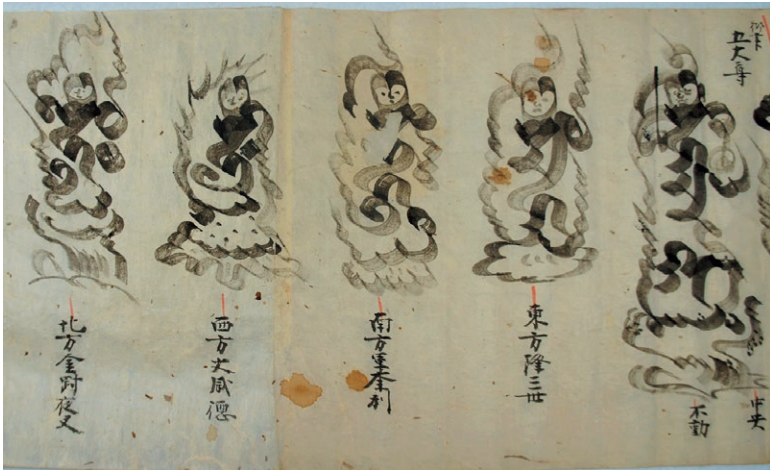 五大尊
中央
不動
東方降三世
南方軍荼利
西方大威徳
北方金剛夜叉